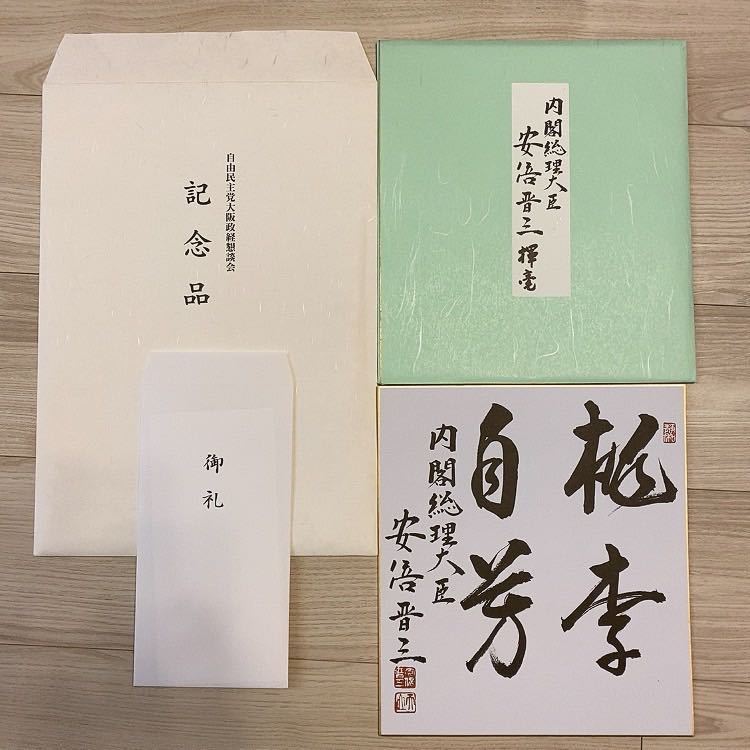 自由民主党大阪政経懇談会
記念品
御礼
内閣総理大臣
安倍晋三 揮毫
桃李
自芳
内閣総理大臣
安倍晋三